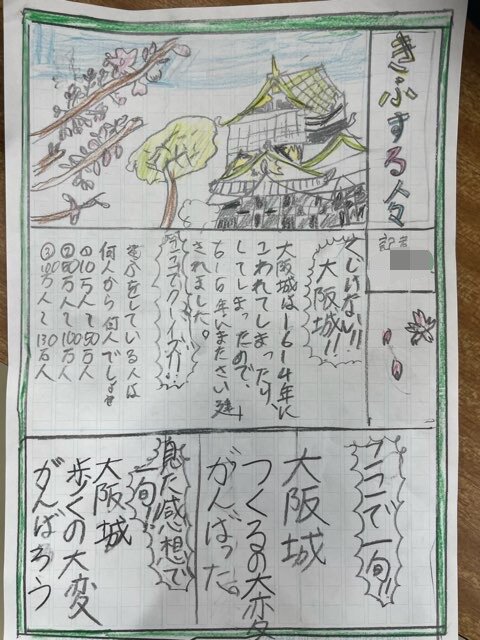 きふする人々
記者
くじけない!!
大阪城!!
大阪城は1614年に
こわれてしまったり
してしまったので、
されました。
ココでクイズ!!
きふをしている人は
何人から何人でしょう
①10万人〜50万人
②50万人〜100万人
③100万人〜130万人
ココで一句!!
大阪城
つくるの大変
がんばった。
見た感想で
一句!!
大阪城
歩くの大変
がんばろう